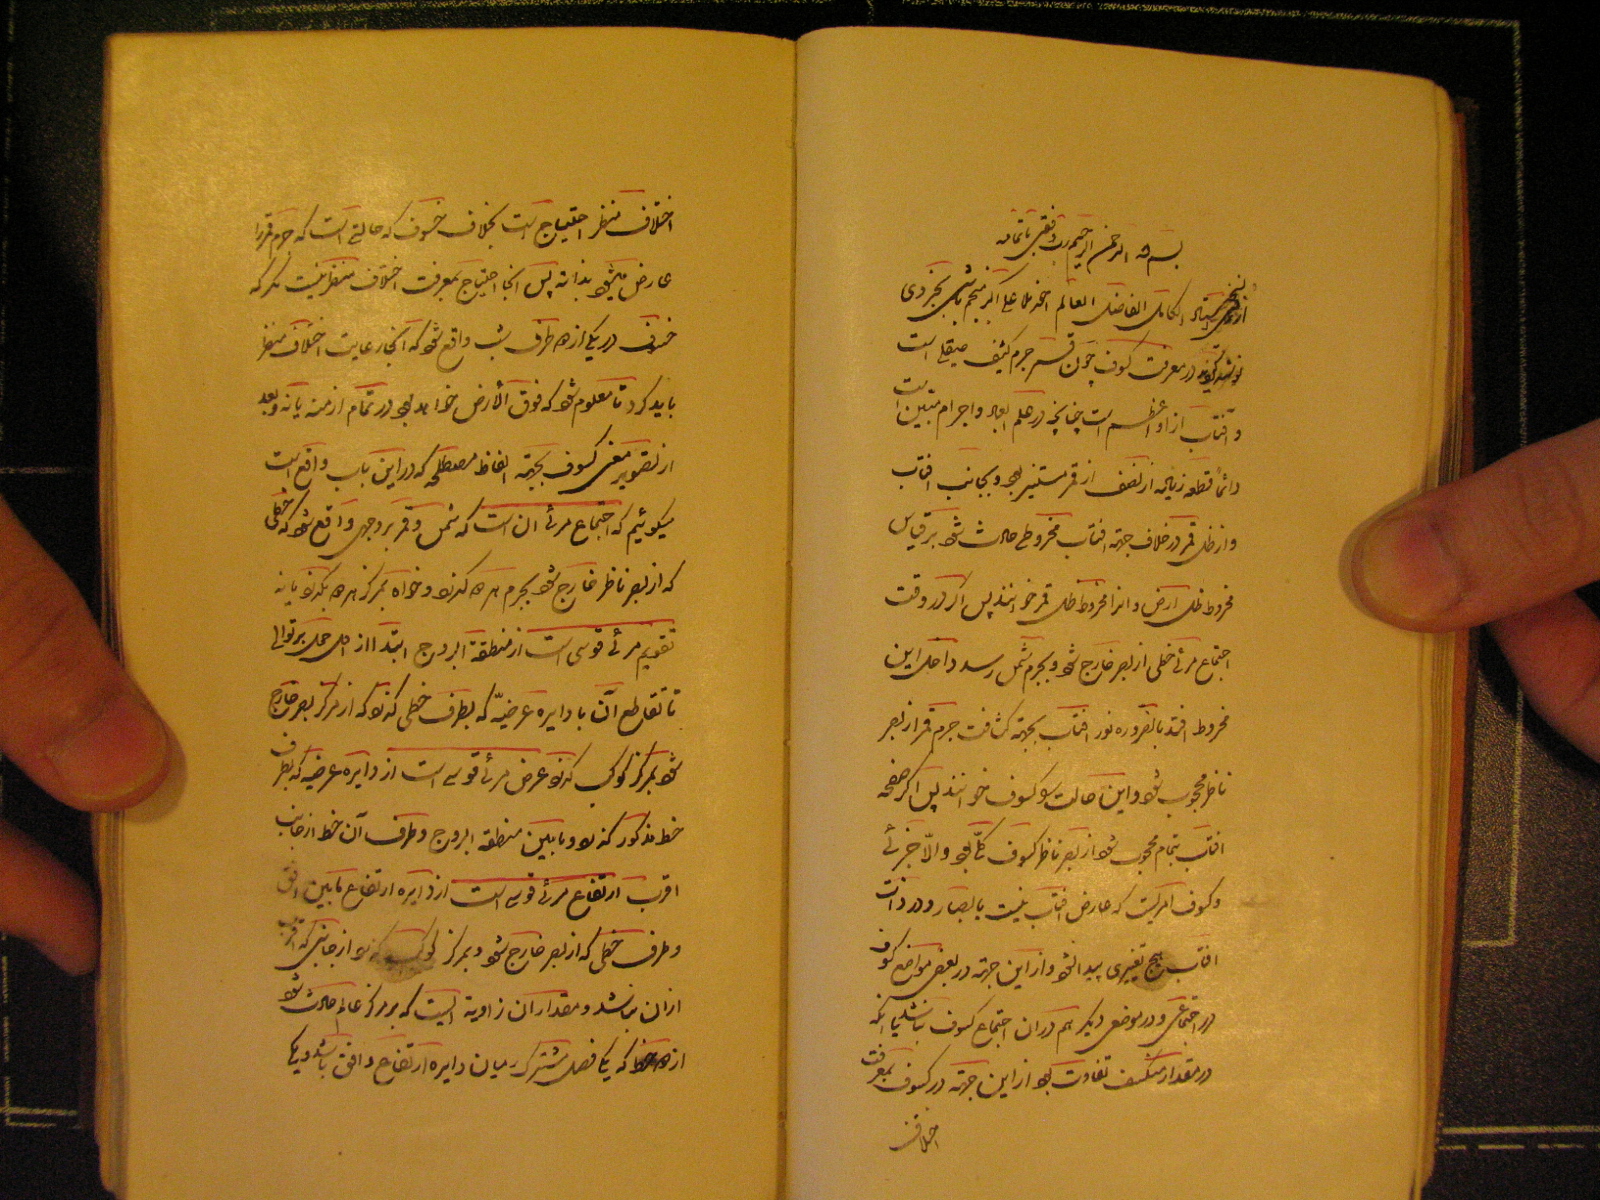 بسم الله الرحمن الرحیم رب وفقنی باتمامه
الکامل الفاضل العالم اخوند ملا علی اکبر منجم باشی بجنردی
در معرفت کسوف چون قمر جرم کثیف صیقلی است
و آفتاب از او اعظم است چنانچه در علم ابعاد و اجرام مبین است
دائما قطعه زیاده از نصف از قمر مستنیر بود و بجانب افتاب
و از ظل قمر در خلاف جهة افتاب مخروطی حادث شود بر قیاس
مخروط ظل ارض و انرا مخروط ظل قمر خوانند پس اگر در وقت
اجتماع مرئی خطی از بصر خارج شود و بجرم شمس رسد داخل این
مخروط افتد بالضروره نور افتاب بجهة کثافت جرم قمر از بصر
ناظر محجوب شود و این حالت را کسوف خوانند پس اگر صفحه
افتاب بتمام محجوب شود از بصر ناظر کسوف کلی بود والا جزئی
و کسوف امریست که عارض افتاب نیست بالبصار و در ذات
افتاب هیچ تغییری پیدا نشود و از این جهة در بعض مواضع کسوف
در اجتماعی و در موضعی دیگر هم در ان اجتماع کسوف نباشد یا انکه
در مقدار منکسف تفاوت بود از این جهة در کسوف بمعرفت
اختلاف
اختلاف منظر احتیاج است بخلاف خسوف که حالتی است که جرم قمر را
عارض میشود بذاته پس انجا احتیاج بمعرفت اختلاف منظر نیست مگر که
خسوف در یکی از دو طرف شب واقع شود که انجا رعایت اختلاف منظر
باید کرد تا معلوم شود که فوق الارض خواهد بود در تمام ازمنه یا نه و بعد
از تصویر معنی کسوف بجهة الفاظ مصطلحه که در این باب واقع است
میگوئیم که اجتماع مرئی ان است که شمس و قمر بر وجهی واقع شود که خطی
که از بصر ناظر خارج شود بجرم هر دو گذرد و خواه بمرکز هر دو بگذرد یا نه
تقویم مرئی قوسی است از منطقة البروج ابتدا از اول حمل بر توالی
تا تقاطع آن با دایره عرضیه که بطرف خطی گذرد که از مرکز بصر خارج
شود بمرکز کوکب گذرد عرض مرئی قوسی است از دایره عرضیه که بطرف
خط مذکور گذرد و مابین منطقة البروج و طرف آن خط از جانب
اقرب ارتفاع مرئی قوسی است از دایره ارتفاع مابین افق
و طرف خطی که از بصر خارج شود و بمرکز کوکب گذرد از جانبی که اقرب
از ان نباشد و مقدار ان زاویة ایست که بر مرکز عالم حادث شود
از که یکی فصل مشترک میان دایره ارتفاع و افق باشد و یکی